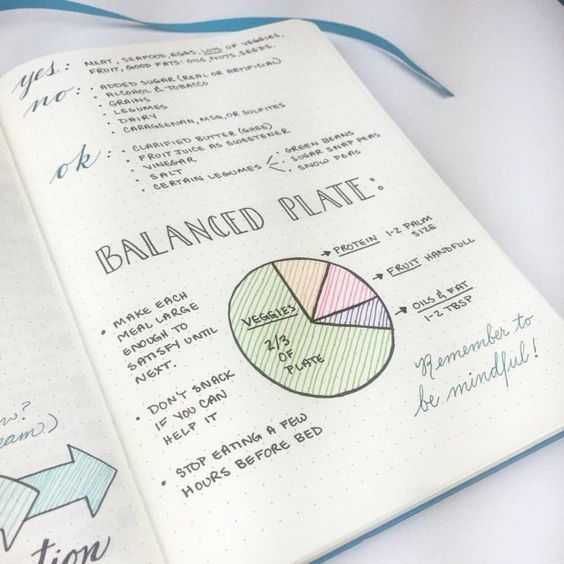 yes: MEAT, SEAFOOD, EGGS, LOTS OF VEGGIES,
FRUIT, GOOD FATS: OILS, NUTS, SEEDS.
no: • ADDED SUGAR (REAL OR ARTIFICIAL)
• ALCOHOL & TOBACCO
• GRAINS
• LEGUMES
• DAIRY
• CARAGEENAN, MSG, OR SULFITES
ok: • CLARIFIED BUTTER (GHEE)
• FRUIT JUICE AS SWEETENER
• VINEGAR
• SALT
• CERTAIN LEGUMES
GREEN BEANS
SUGAR SNAP PEAS
SNOW PEAS
BALANCED PLATE:
PROTEIN 1-2 PALM
SIZE
FRUIT HANDFULL
OILS & FAT
1-2 TBSP
VEGGIES
2/3
OF
PLATE
• MAKE EACH
MEAL LARGE
ENOUGH TO
SATISFY UNTIL
NEXT.
• DON'T SNACK
IF YOU CAN
HELP IT
• STOP EATING A FEW
HOURS BEFORE BED
Remember to
be mindful!